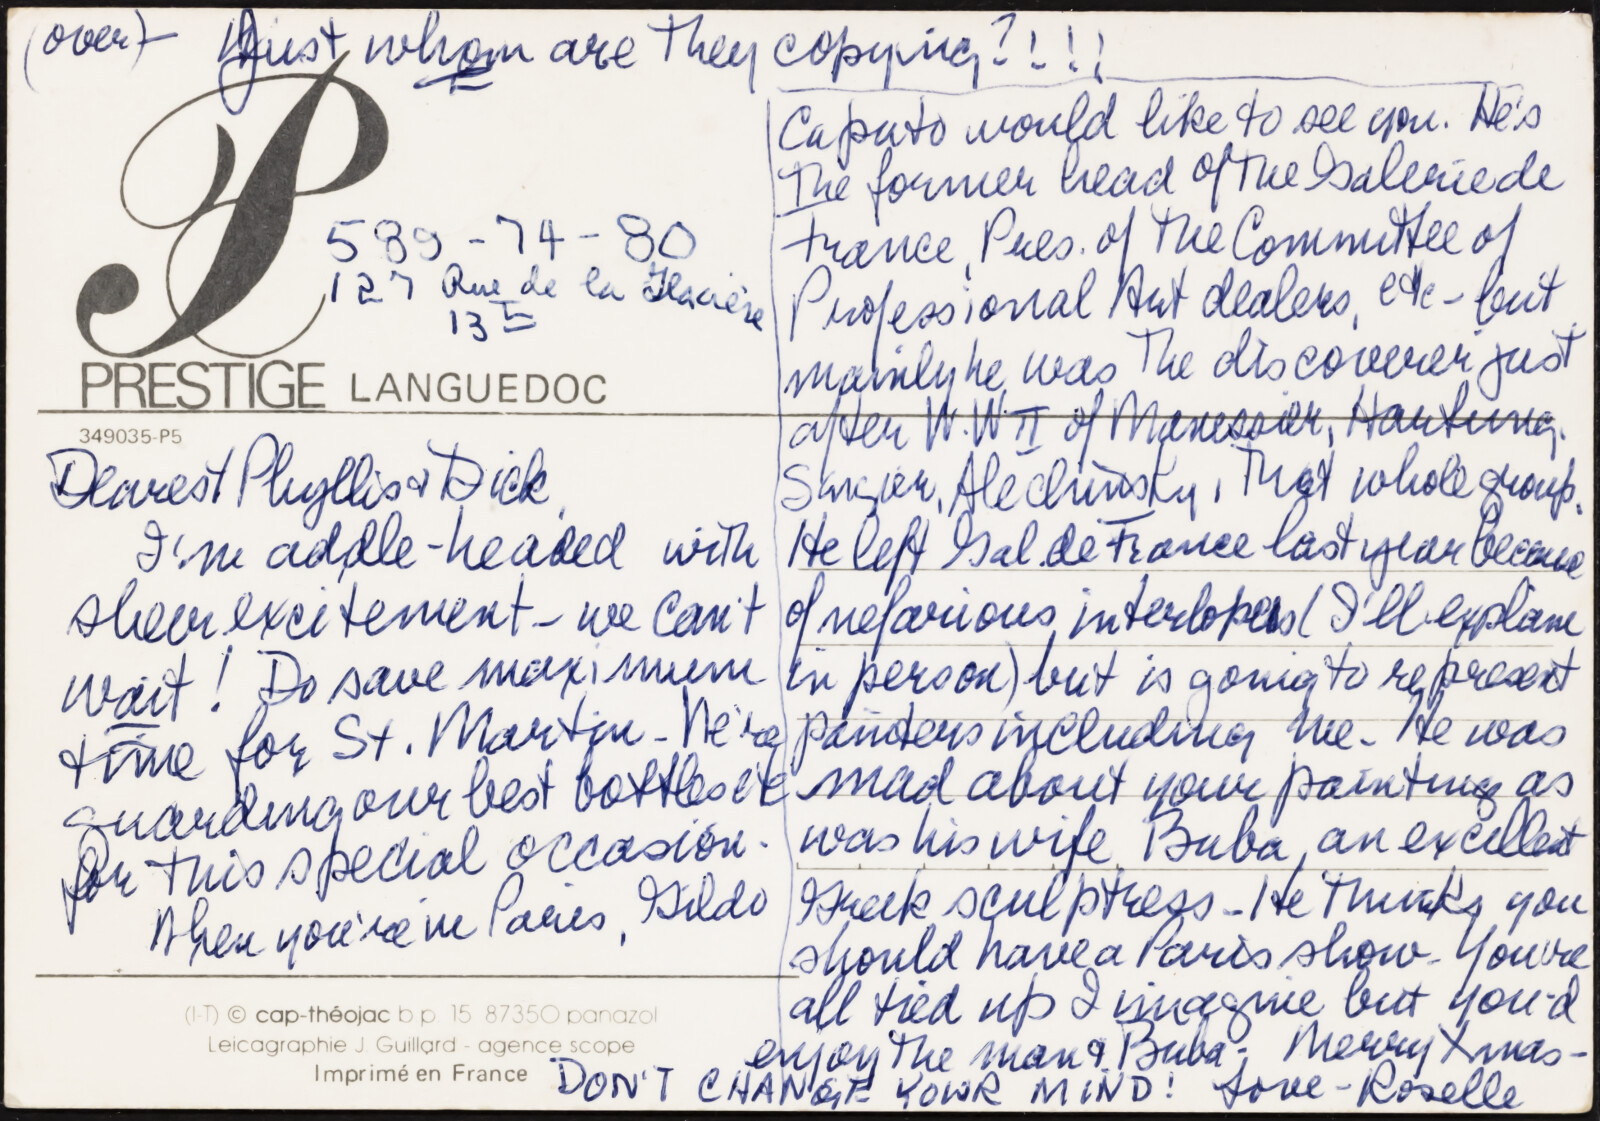 (over) - Just whom are they copying?!!!
589-74-80
127 Rue de la Glacière
13E
PRESTIGE LANGUEDOC
349035-P5
Dearest Phyllis & Dick,
I'm addle-headed with
sheer excitement - we can't
wait! Do save maximum
time for St. Martin - We're
guarding our best bottles etc
for this special occasion.
When you're in Paris, Gildo
Caputo would like to see you. He's
the former head of the Galerie de
France, Pres. of the Committee of
Professional Art dealers, etc - but
mainly he was the discoverer just
after W.W II of Manessier, Hartung,
Singier, Alechinsky, that whole group.
He left Gal. de France last year because
of nefarious interlopers (I'll explain
in person) but is going to represent
painters including me - He was
mad about your painting as
was his wife Buba, an excellent
Greek sculptress - He thinks you
should have a Paris show - You're
all tied up I imagine but you'd
enjoy the man & Buba - Merry Xmas -
DON'T CHANGE YOUR MIND! Love - Roselle
(I-T) © cap-théojac b.p. 15 87350 panazol
Leicagraphie J. Guillard - agence scope
Imprimé en France